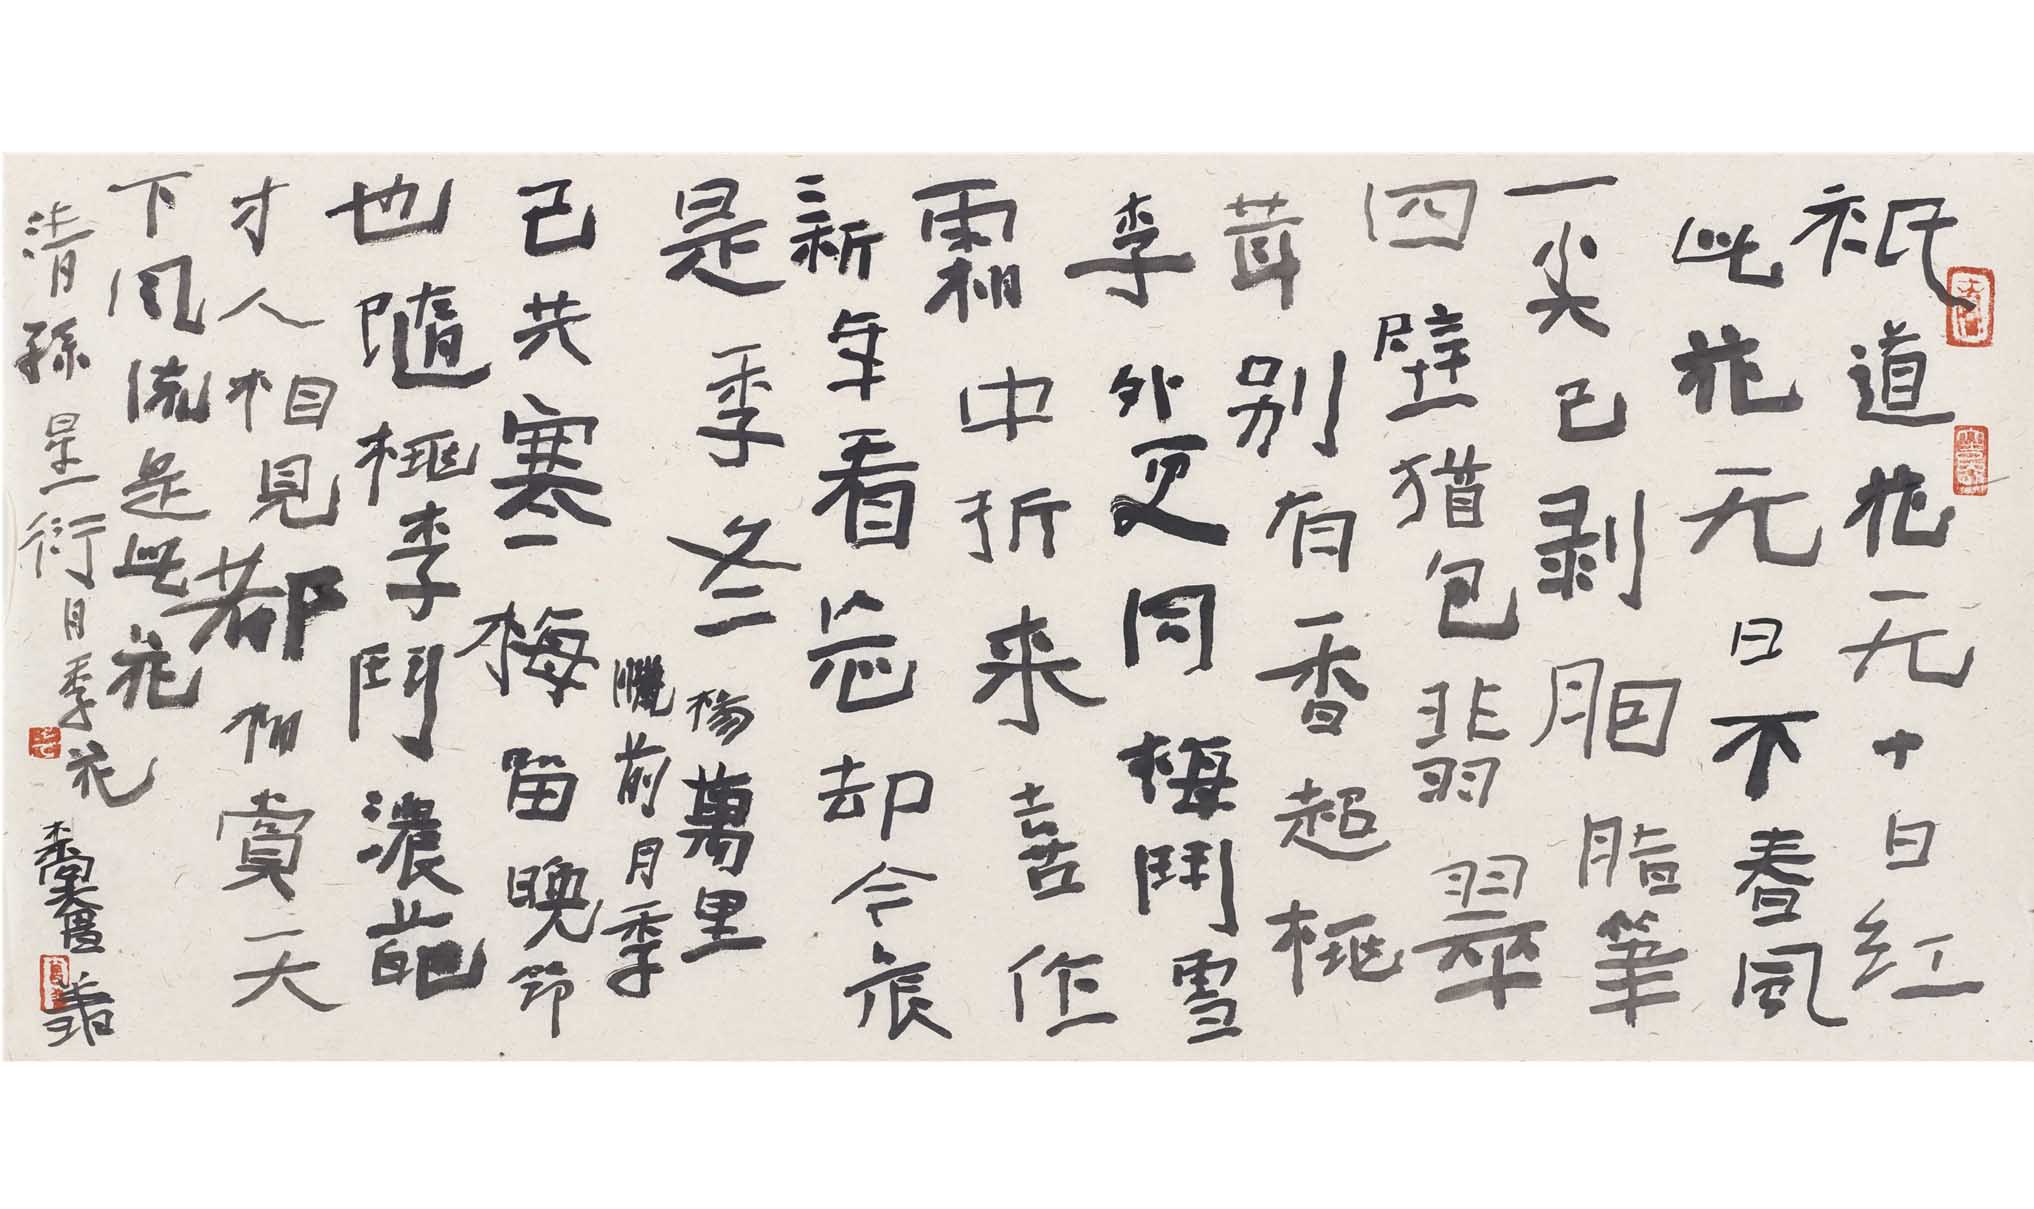 祇道花无十日红
此花无日不春風
一尖已剥胭脂筆
四壁猶包翡翠
茸别有香超桃
李外更同梅鬥雪
霜中折来喜作
新年看忘却今辰
是季冬 楊萬里
臘前月季
已共寒梅留晚節
也隨桃李鬥濃葩
才人相見都相賞天
下风流是此花
清 孫星衍 月季花